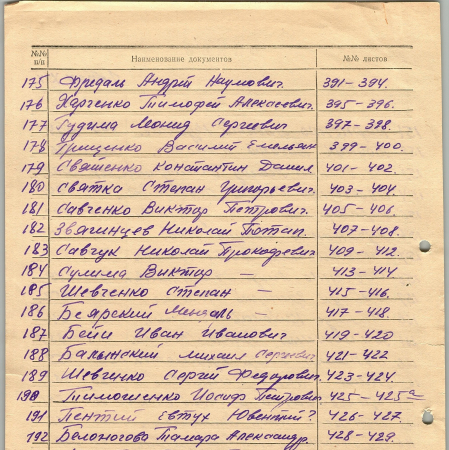 №№ п/п Наименование документов №№ листов
175 Фридаль Андрій Наумович 391-394.
176 Харченко Тимофей Алексеевич. 395-396.
177 Гудима Леонид Сергеевич 397-398.
178 Грищенко Василий Емельян 399-400.
179 Святенко Константин Данил 401-402.
180 Святка Степан Григорьевич. 403-404.
181 Савченко Виктор Петрович. 405-406.
182 Звягинцев Николай Потап. 407-408.
183 Савчук Николай Прокофьевич 409-412.
184 Сулима Виктор — 413-414.
185 Шевченко Степан — 415-416.
186 Беярский — 417-418
187 Бейи Иван Иванович 419-420
188 Балынский Михаил Сергеевич 421-422
189 Шевченко Сергій Федорович. 423-424.
190 Тимошенко Иосиф Петрович 425-425а
191 Пентий Евтух Ювентий? 426-427.
192 Белоногова Тамара Александр. 428-429.